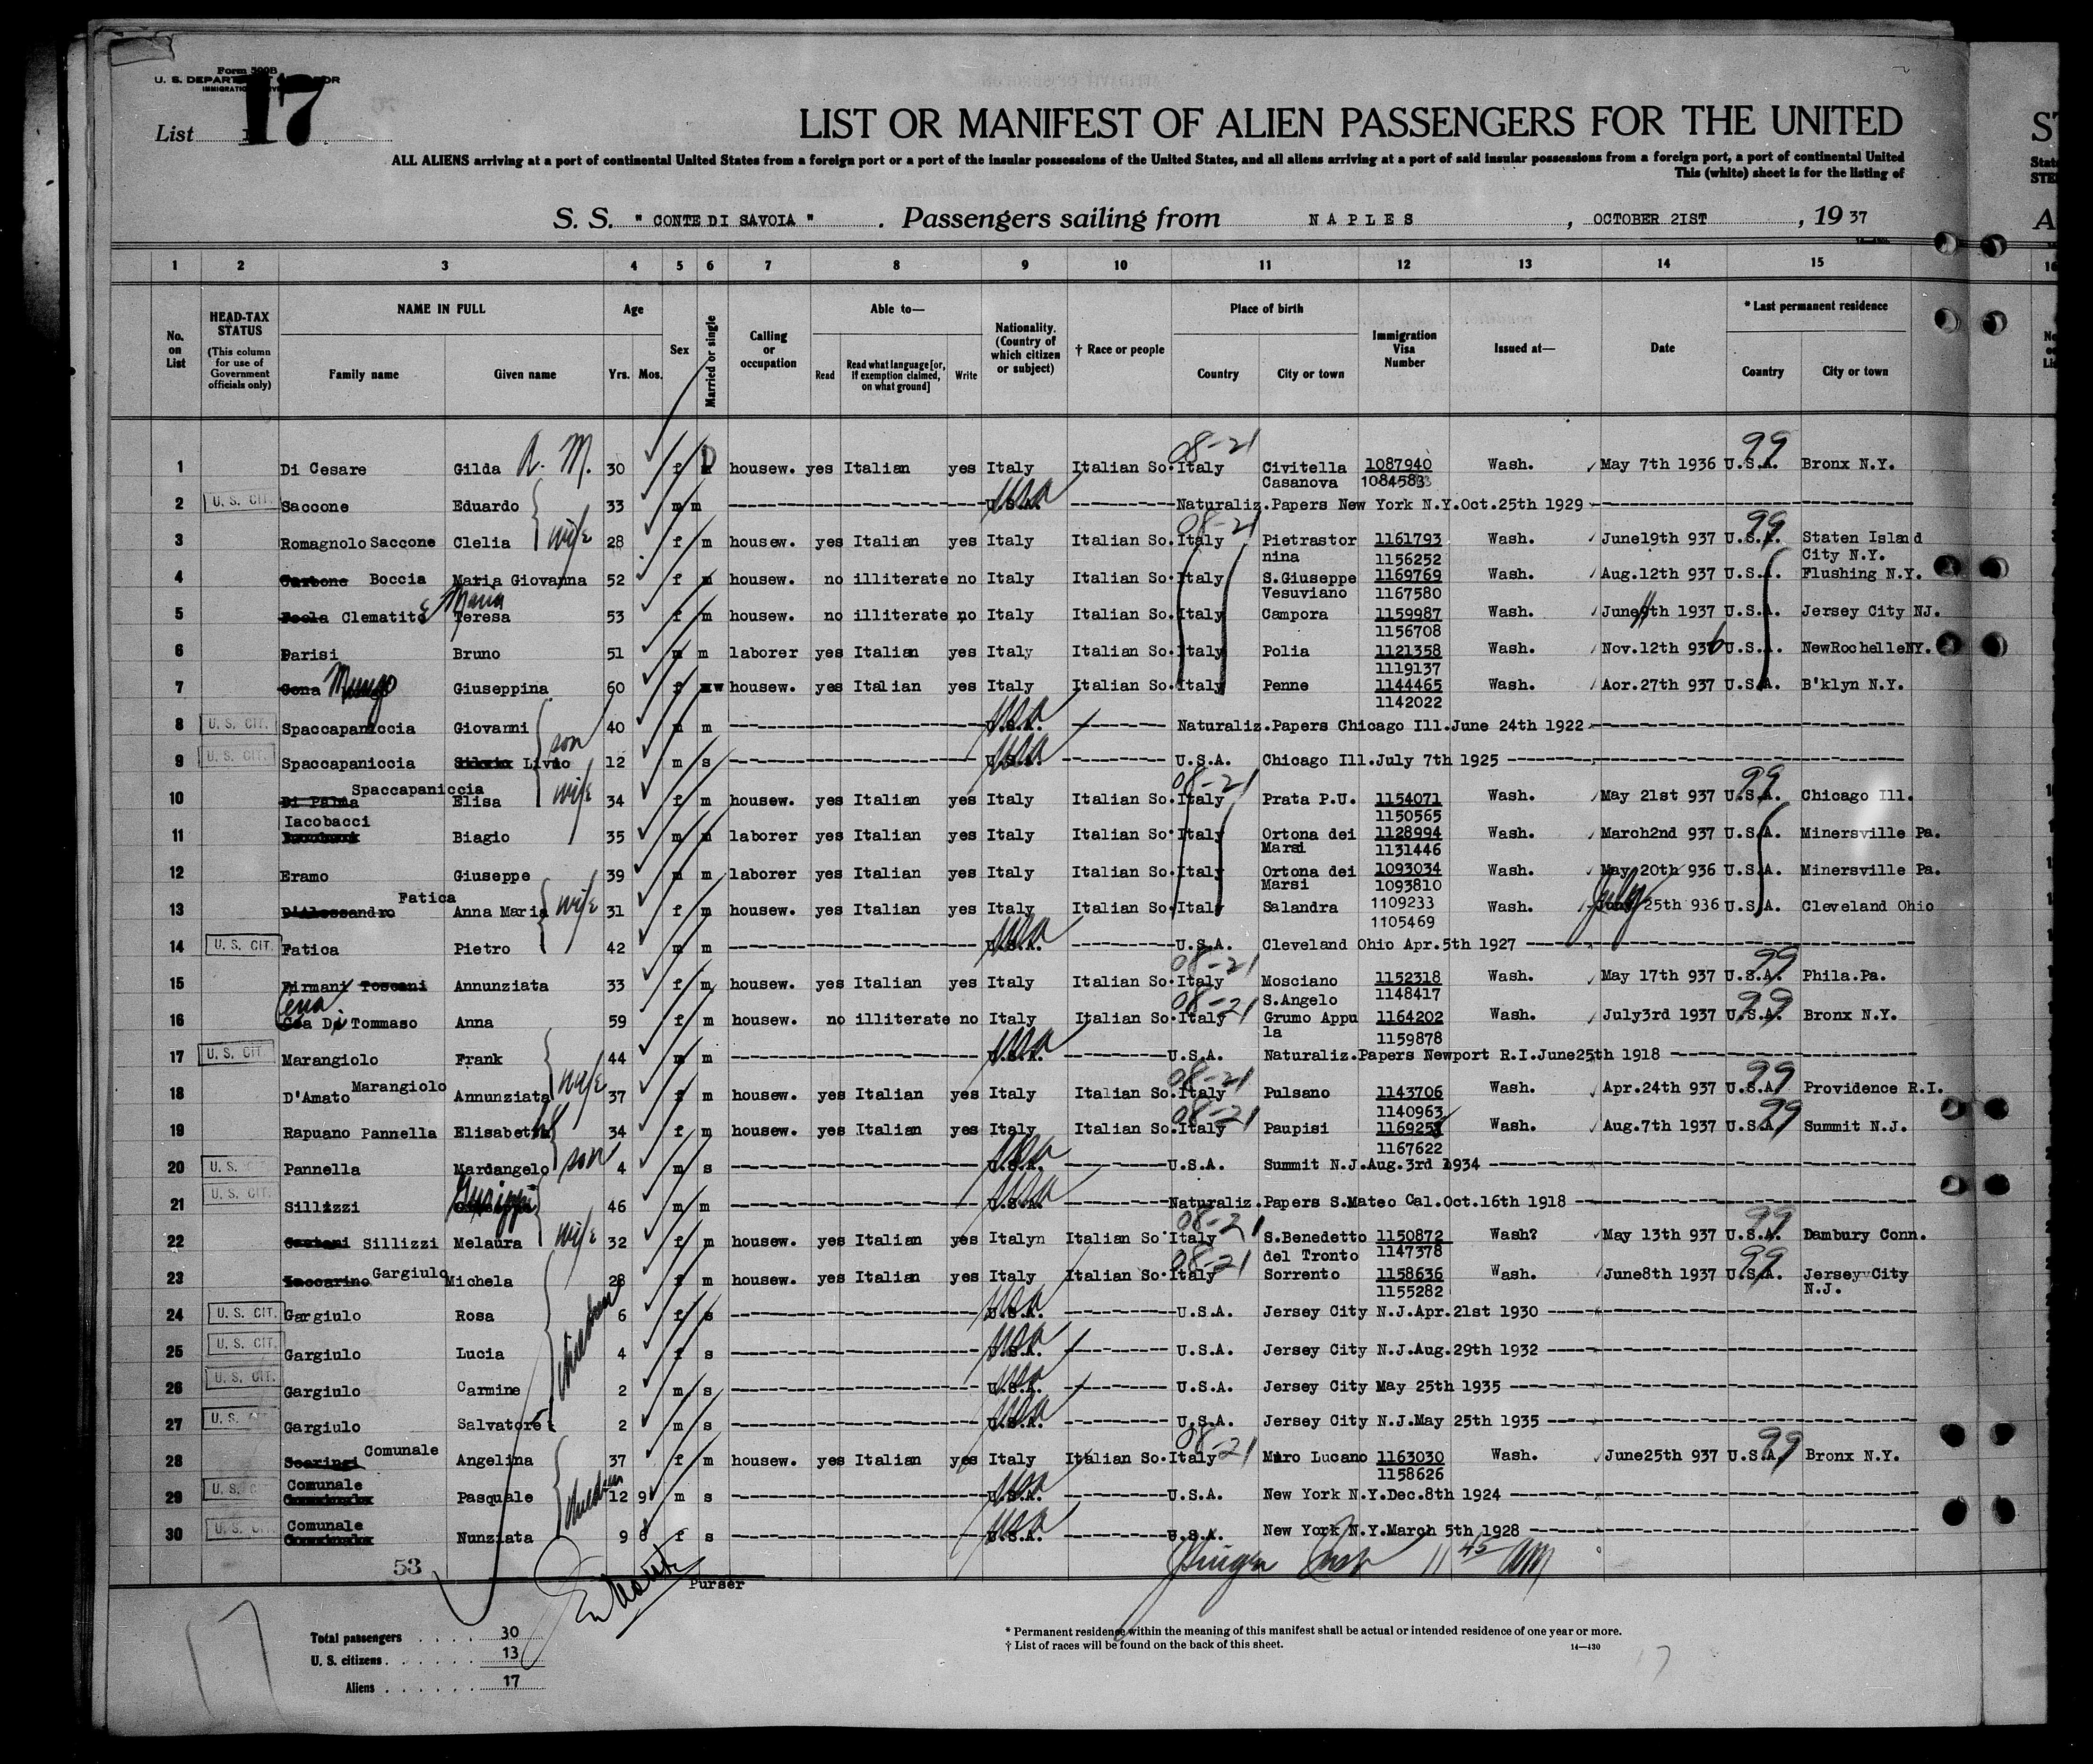 Form 500B
U. S. DEPARTMENT OF LABOR
IMMIGRATION
List 17
LIST OR MANIFEST OF ALIEN PASSENGERS FOR THE UNITED
ALL ALIENS arriving at a port of continental United States from a foreign port or a port of the insular possessions of the United States, and all aliens arriving at a port of said insular possessions from a foreign port, a port of continental United
This (white) sheet is for the listing of
S. S. " CONTE DI SAVOIA ". Passengers sailing from NAPLES, OCTOBER 21ST, 19 37
1 2 3 4 5 6 7 8 9 10 11 12 13 14 15
No. on List
HEAD-TAX STATUS (This column for use of Government officials only)
NAME IN FULL Family name Given name
Age Yrs. Mos.
Sex
Married or single
Calling or occupation
Able to— Read Read what language [or, if exemption claimed, on what ground] Write
Nationality. (Country of which citizen or subject)
† Race or people
Place of birth Country City or town
Immigration Visa Number
Issued at—
Date
* Last permanent residence Country City or town
1 Di Cesare Gilda A. M. 30 f D housew. yes Italian yes Italy Italian So. Italy 08-21 Civitella Casanova 1087940 1084583 Wash. May 7th 1936 U.S.A. 99 Bronx N.Y.
2 U. S. CIT. Saccone Eduardo 33 m m U.S.A. usa Naturaliz.Papers New York N.Y.Oct.25th 1929
3 Romagnolo Saccone Clelia wife 28 f m housew. yes Italian yes Italy Italian So. Italy 08-21 Pietrastor nina 1161793 1156252 Wash. June19th 937 U.S.A. 99 Staten Island City N.Y.
4 Carbone Boccia Maria Giovanna 52 f m housew. no illiterate no Italy Italian So. Italy S.Giuseppe Vesuviano 1169769 1167580 Wash. Aug.12th 937 U.S.A. Flushing N.Y.
5 Feola Clematite Maria Teresa 53 f m housew. no illiterate no Italy Italian So. Italy Campora 1159987 1156708 Wash. June 9th 1937 U.S.A. Jersey City NJ.
6 Parisi Bruno 51 m m laborer yes Italian yes Italy Italian So. Italy Polia 1121358 1119137 Wash. Nov.12th 936 U.S.A. NewRochelleNY.
7 Giuseppina 60 f w housew. yes Italian yes Italy Italian So. Italy Penne 1144465 1142022 Wash. Aor.27th 937 U.S.A. B'klyn N.Y.
8 U. S. CIT. Spaccapaniccia Giovanni 40 m m U.S.A. usa Naturaliz.Papers Chicago Ill.June 24th 1922
9 U. S. CIT. Spaccapaniccia Silvio Livio son 12 m s U.S.A. usa U.S.A. Chicago Ill.July 7th 1925
10 Di Palma Spaccapaniccia Elisa wife 34 f m housew. yes Italian yes Italy Italian So. Italy 08-21 Prata P.U. 1154071 1150565 Wash. May 21st 937 U.S.A. 99 Chicago Ill.
11 Iacobacci Biagio 35 m m laborer yes Italian yes Italy Italian So. Italy Ortona dei Marsi 1128994 1131446 Wash. March2nd 937 U.S.A. Minersville Pa.
12 Eramo Giuseppe 39 m m laborer yes Italian yes Italy Italian So. Italy Ortona dei Marsi 1093034 1093810 Wash. May 20th 936 U.S.A. Minersville Pa.
13 D'Alessandro Fatica Anna Maria wife 31 f m housew. yes Italian yes Italy Italian So. Italy Salandra 1109233 1105469 Wash. July 25th 936 U.S.A. Cleveland Ohio
14 U. S. CIT. Fatica Pietro 42 m m U.S.A. usa U.S.A. Cleveland Ohio Apr.5th 1927
15 Firmani Toscani Annunziata 33 f m housew. yes Italian yes Italy Italian So. Italy 08-21 Mosciano S.Angelo 1152318 1148417 Wash. May 17th 937 U.S.A. 99 Phila.Pa.
16 Cena Di Tommaso Anna 59 f m housew. no illiterate no Italy Italian So. Italy 08-21 Grumo Appu la 1164202 1159878 Wash. July3rd 1937 U.S.A. 99 Bronx N.Y.
17 U. S. CIT. Marangiolo Frank 44 m m U.S.A. usa U.S.A. Naturaliz.Papers Newport R.I.June25th 1918
18 D'Amato Marangiolo Annunziata wife 37 f m housew. yes Italian yes Italy Italian So. Italy 08-21 Pulsano 1143706 1140963 Wash. Apr.24th 937 U.S.A. 99 Providence R.I.
19 Rapuano Pannella Elisabetta 34 f m housew. yes Italian yes Italy Italian So. Italy 08-21 Paupisi 1167622 Wash. Aug.7th 1937 U.S.A. 99 Summit N.J.
20 U. S. CIT. Pannella Mardangelo son 4 m s U.S.A. usa U.S.A. Summit N.J.Aug.3rd 1934
21 U. S. CIT. Sillizzi Guiseppe 46 m m U.S.A. usa Naturaliz.Papers S.Mateo Cal.Oct.16th 1918
22 Sillizzi Melaura wife 32 f m housew. yes Italian yes Italyn Italian So. Italy 08-21 S.Benedetto del Tronto 1150872 1147378 Wash? May 13th 937 U.S.A. 99 Dambury Conn.
23 Iaccarino Gargiulo Michela 28 f m housew. yes Italian yes Italy Italian So. Italy 08-21 Sorrento 1158636 1155282 Wash. June8th 1937 U.S.A. 99 Jersey City N.J.
24 U. S. CIT. Gargiulo Rosa children 6 f s U.S.A. usa U.S.A. Jersey City N.J.Apr.21st 1930
25 U. S. CIT. Gargiulo Lucia 4 f s U.S.A. usa U.S.A. Jersey City N.J.Aug.29th 1932
26 U. S. CIT. Gargiulo Carmine 2 m s U.S.A. usa U.S.A. Jersey City May 25th 1935
27 U. S. CIT. Gargiulo Salvatore 2 m s U.S.A. usa U.S.A. Jersey City N.J.May 25th 1935
28 Scaringi Comunale Angelina 37 f m housew. yes Italian yes Italy Italian So. Italy 08-21 Muro Lucano 1163030 1158626 Wash. June25th 937 U.S.A. 99 Bronx N.Y.
29 U. S. CIT. Comunale Pasquale children 12 9 m s U.S.A. usa U.S.A. New York N.Y.Dec.8th 1924
30 U. S. CIT. Comunale Nunziata 9 6 f s U.S.A. usa U.S.A. New York N.Y.March 5th 1928
53
Purser
11 45 AM
Total passengers . . . . 30
U. S. citizens . . . . . . 13
Aliens . . . . . . 17
* Permanent residence within the meaning of this manifest shall be actual or intended residence of one year or more.
† List of races will be found on the back of this sheet.
14—430
17
17